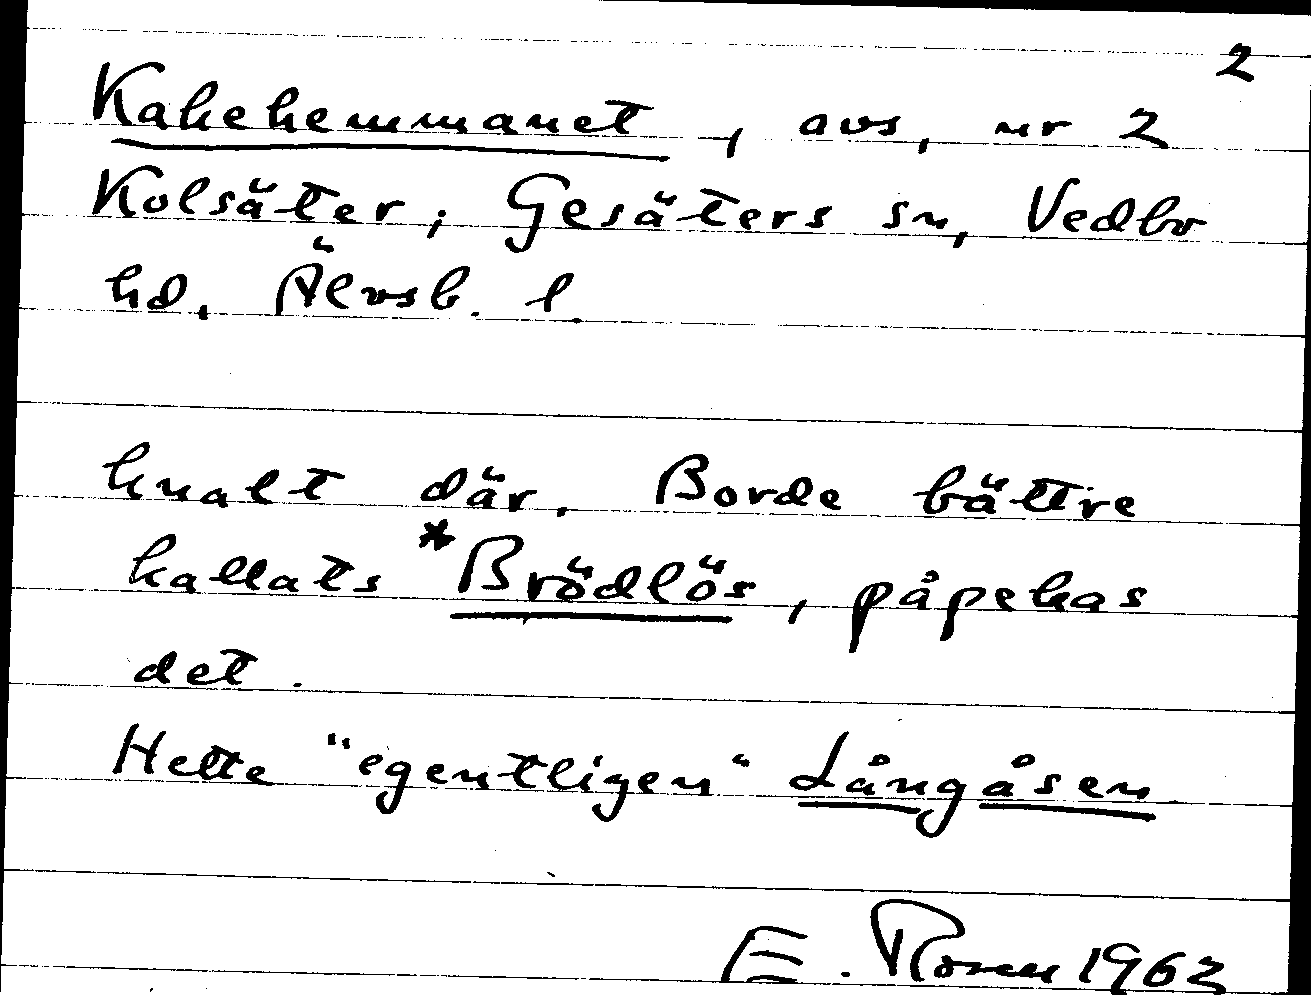 2
Kakehemmanet, avs, nr 2
Kolsäter, Gesäters sn, Vedbo
hd. Älvsb. l.
knalt där. Borde bättre
kallats *Brödlös, påpekas
det.
Hette "egentligen" Långåsen
E. Rosen 1962